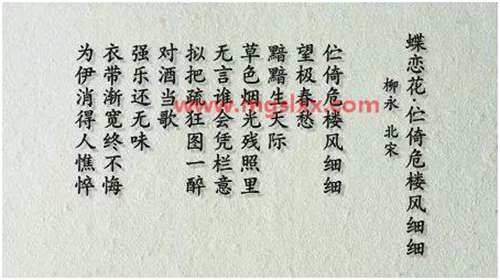 蝶恋花·伫倚危楼风细细
柳永 北宋
伫倚危楼风细细
望极春愁
黯黯生天际
草色烟光残照里
无言谁会凭栏意
拟把疏狂图一醉
对酒当歌
强乐还无味
衣带渐宽终不悔
为伊消得人憔悴
www.mgslxx.com